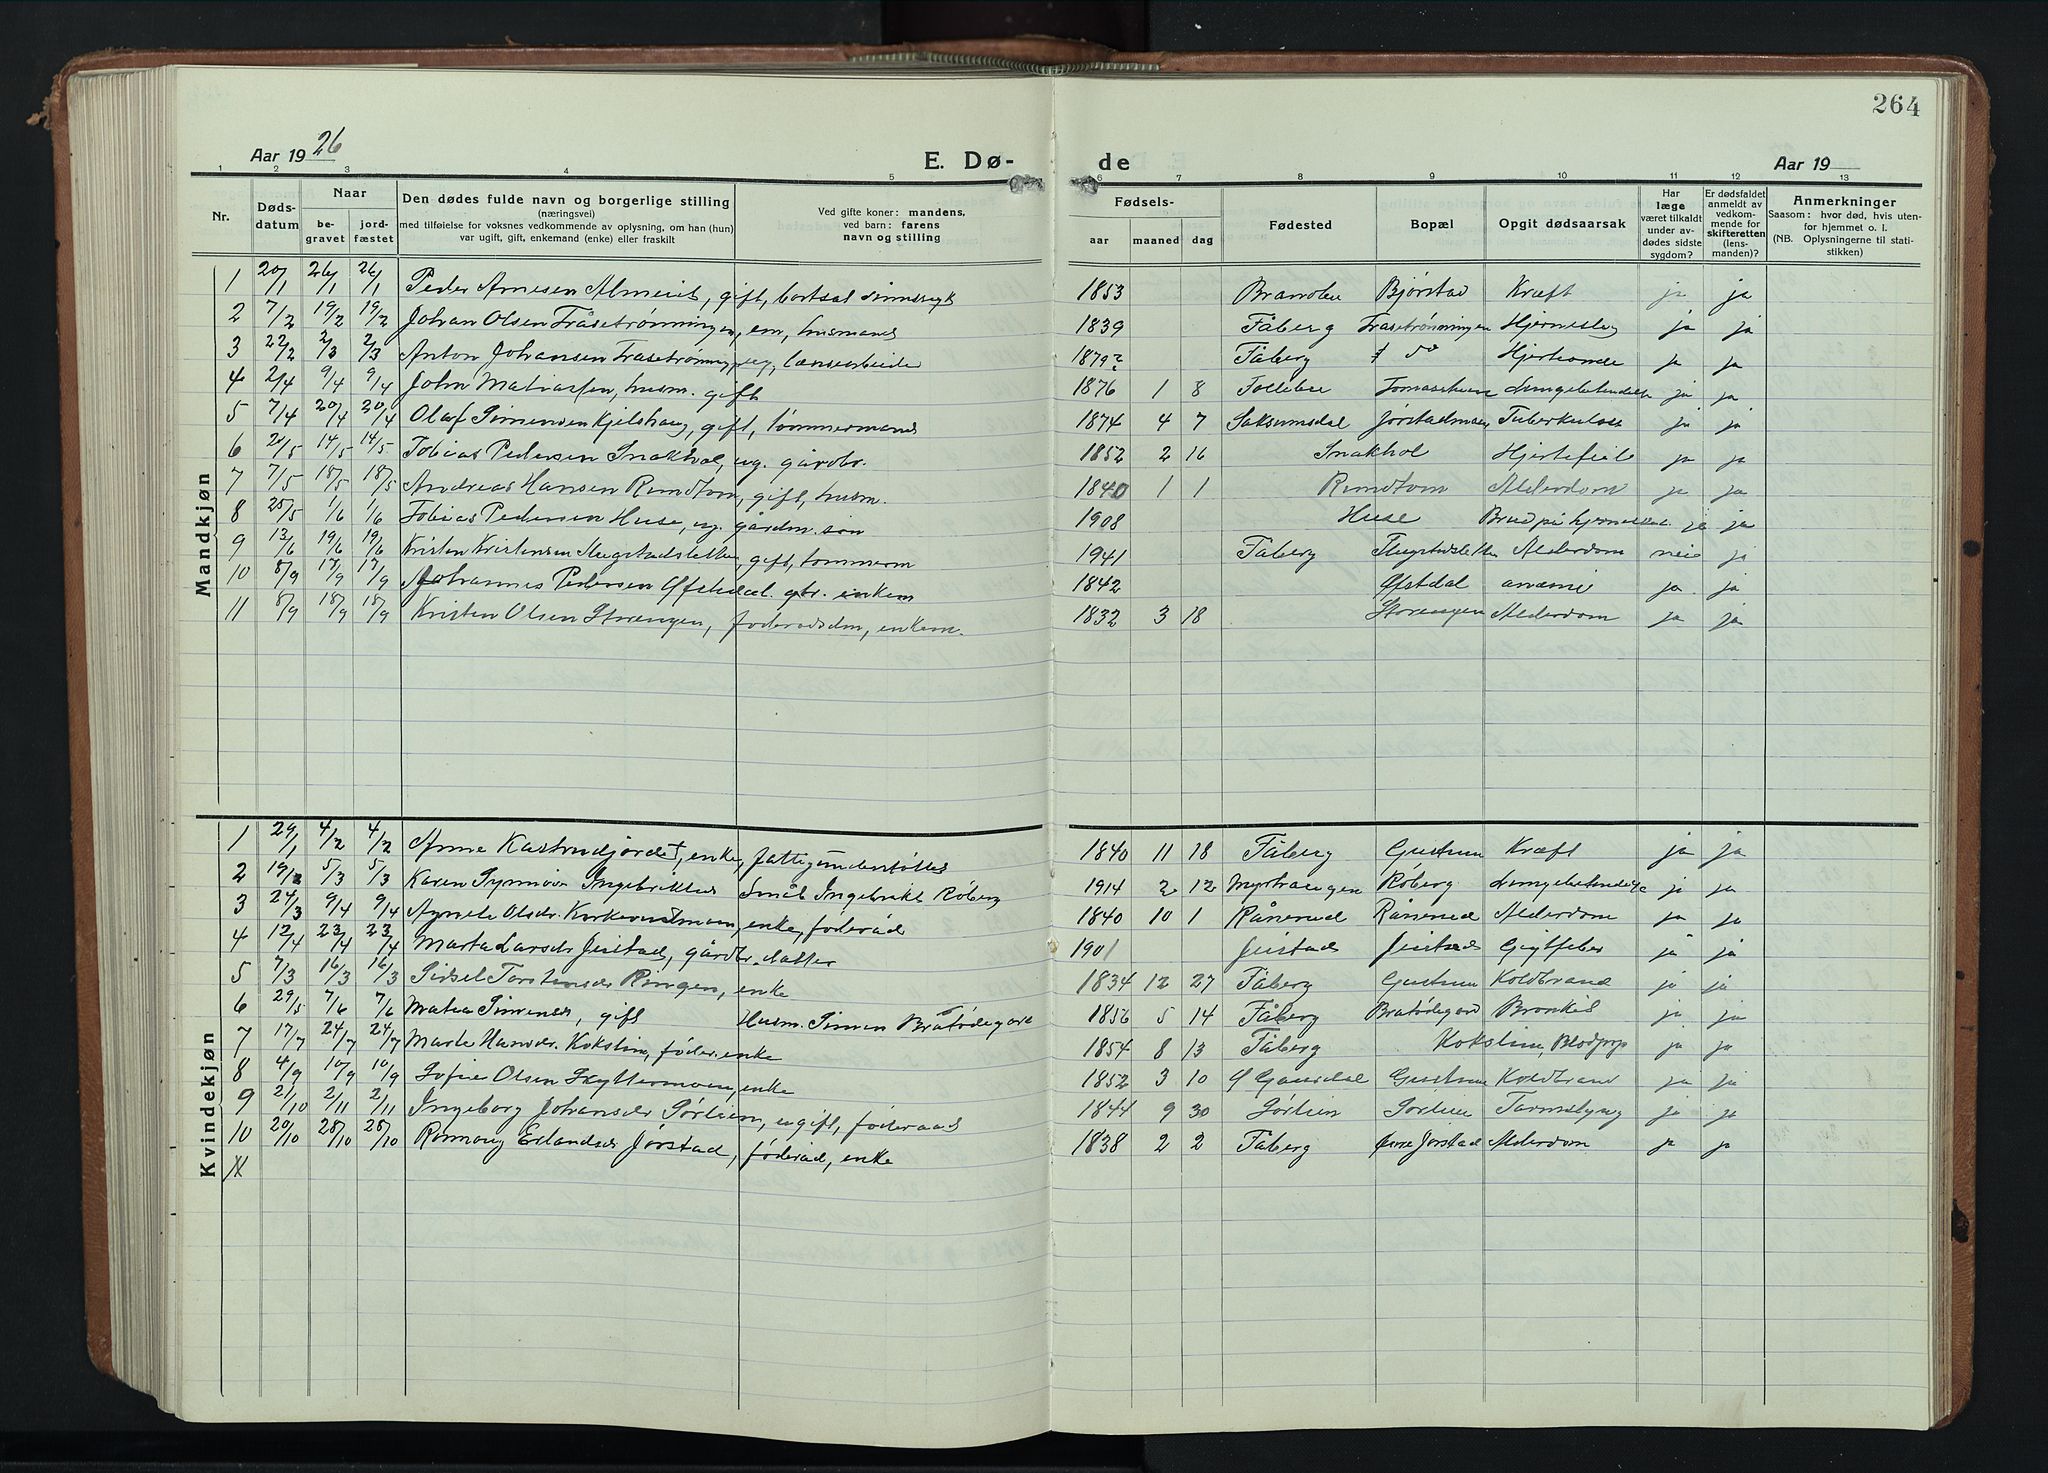 264
Aar 1926
E. Dø-
de
Aar 19
1 2 3 4 5 6 7 8 9 10 11 12 13
Nr. Døds-datum Naar be-gravet jord-fæstet Den dødes fulde navn og borgerlige stilling (næringsvei) med tilføielse for voksnes vedkommende av oplysning, om han (hun) var ugift, gift, enkemand (enke) eller fraskilt Ved gifte koner: mandens, ved barn: farens navn og stilling Fødsels- aar maaned dag Fødested Bopæl Opgit dødsaarsak Har læge været tilkaldt under av-dødes sidste sygdom? Er dødsfaldet anmeldt av vedkom-mende for skifteretten (lens-manden)? Anmerkninger Saasom: hvor død, hvis uten-for hjemmet o. l. (NB. Oplysningerne til stati-stikken)
Mandkjøn
1 20/1 26/1 26/1 Peder Arnesen, gift, 1853 Bjørstad Kræft ja ja
2 7/2 19/2 19/2 Johan Olsen Fråsetrønningen, em, husmand 1839 Fåberg Frasetrønningen Hjerneslag ja ja
3 22/2 2/3 2/3 Anton Johansen 1879? Fåberg Do ja ja
4 2/4 9/4 9/4 John Matiassen, husm. gift 1876 1 8 Follebu Lungebetendelse ja ja
5 7/4 20/4 20/4 Olaf Simensen Kjelshaug, gift, tømmermand 1874 4 7 Saksumsdal Jørstadmoen Tuberkulose ja ja
6 14/5 14/5 Tobias Pedersen Snakhol, ug. gårdbr. 1852 2 16 Snakhol Hjertefeil ja ja
7 7/5 18/5 18/5 Andreas Hansen Rundtom, gift, husm. 1840 1 1 Rundtom Alderdom ja ja
8 25/5 1/6 1/6 Tobias Pedersen Huse, ug. gårdm. søn 1908 Huse Brud på ja ja
9 13/6 19/6 19/6 Kristen Kristensen, gift, tømmerm 1941 Fåberg Alderdom nei ja
10 8/9 17/9 17/9 Johannes Pedersen Øfstedal. gbr. enkem 1842 Øfstdal anæmie ja ja
11 8/9 18/9 18/9 Kristen Olsen Storengen, føderådsm, enkem. 1832 3 18 Storengen Alderdom ja ja
Kvindekjøn
1 29/1 4/2 4/2 Anne Kastrudjordet, enke, fattigunderstøttet 1840 11 18 Fåberg Gustum Kræft ja ja
2 5/3 5/3 Karen Synnøve Ingebrikts Småb Ingebrikt Roberg 1914 2 12 Roberg Lungebetendelse ja ja
3 24/3 9/4 9/4 Agnete Olsdr., enke, føderåd 1840 10 1 Rånerud Rånerud Alderdom ja ja
4 12/4 23/4 23/4 Marta Larsdr Jeistad, gårdbr. datter 1901 Jeistad Jeistad Gigtfeber ja ja
5 7/3 16/3 16/3 Sidsel Torstensdr Ringen, enke 1834 12 27 Fåberg Gustum Koldbrand ja ja
6 29/5 7/6 7/6 Matea Simensdr, gift Husm. Simen Bratødegård 1856 5 14 Fåberg Bratødegård Bronkit ja ja
7 17/7 24/7 24/7 Marte Hansdr. Kokslien, føder. enke 1854 8 13 Fåberg Kokslien, Blodprop ja ja
8 4/9 10/9 10/9 Sofie Olsen Skyttermoen, enke 1852 3 10 Ø Gausdal Gustum Koldbrand ja ja
9 21/10 2/11 2/11 Ingeborg Johansdr Sørlien, ugift, føderaad 1844 9 30 Sørlien Sørlien Tarmslyng ja ja
10 20/10 28/10 28/10 Ronnoug Erlandsdr Jørstad, føderåd, enke 1838 2 2 Fåberg Øvre Jørstad Alderdom ja ja